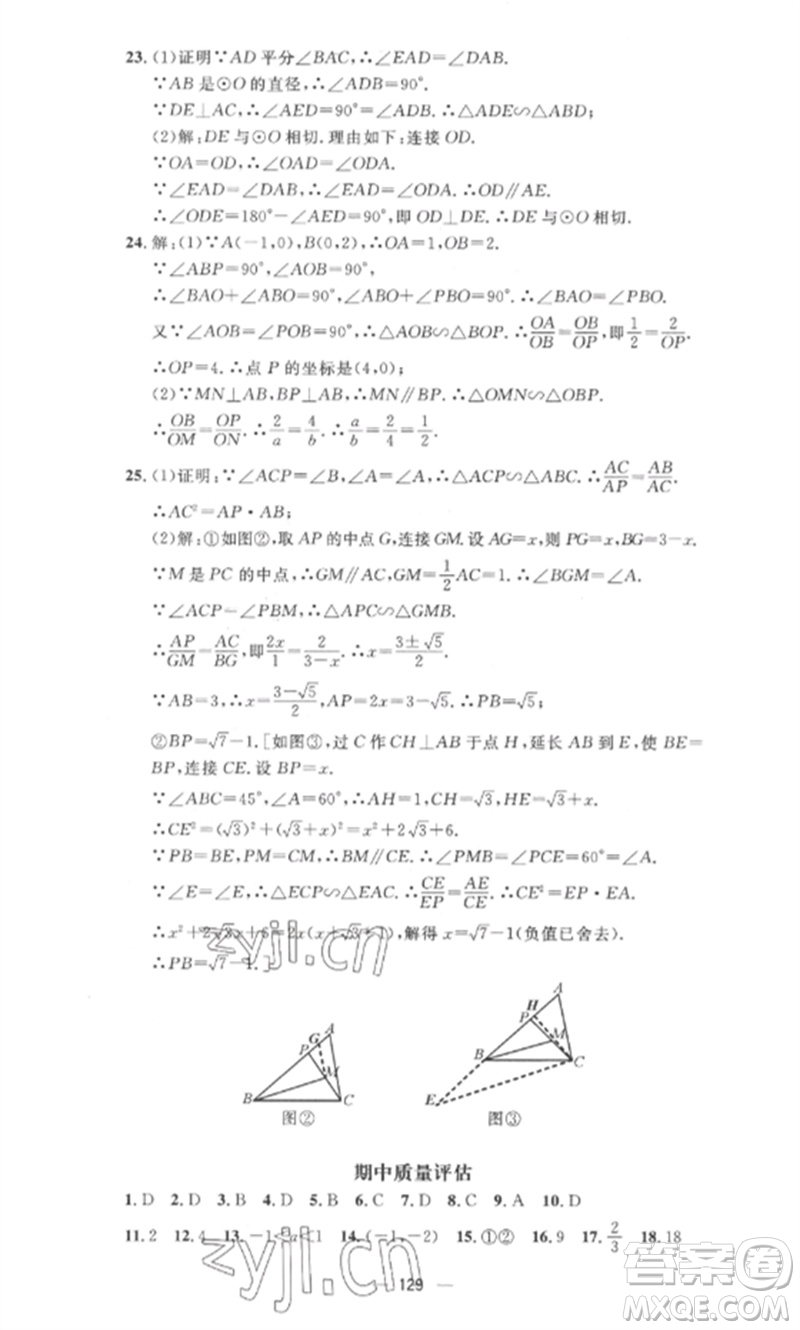 23. (1)证明∵AD平分∠BAC,∴∠EAD=∠DAB.
∵AB是⊙O的直径,∴∠ADB=90°.
∵DE⊥AC,∴∠AED=90°=∠ADB.∴△ADE∽△ABD;
(2)解:DE与⊙O相切.理由如下:连接OD.
∵OA=OD,∴∠OAD=∠ODA.
∵∠EAD=∠DAB,∴∠EAD=∠ODA.∴OD∥AE.
∴∠ODE=180°-∠AED=90°,即OD⊥DE.∴DE与⊙O相切.
24. 解:(1)∵A(-1,0),B(0,2),∴OA=1,OB=2.
∵∠ABP=90°,∠AOB=90°,
∴∠BAO+∠ABO=90°,∠ABO+∠PBO=90°.∴∠BAO=∠PBO.
又∵∠AOB=∠POB=90°,∴△AOB∽△BOP.∴OA/OB=OB/OP,即1/2=2/OP.
∴OP=4.∴点P的坐标是(4,0);
(2)∵MN⊥AB,BP⊥AB,∴MN∥BP.∴△OMN∽△OBP.
∴OB/OM=OP/ON.∴2/a=4/b.∴a/b=2/4=1/2.
25. (1)证明:∵∠ACP=∠B,∠A=∠A,∴△ACP∽△ABC.∴AC/AP=AB/AC.
∴AC²=AP·AB;
(2)解:①如图②,取AP的中点G,连接GM.设AG=x,则PG=x,BG=3-x.
∵M是PC的中点,∴GM∥AC,GM=1/2AC=1.∴∠BGM=∠A.
∵∠ACP=∠PBM,∴△APC∽△GMB.
∴AP/GM=AC/BG,即2x/1=2/3-x.∴x=3±√5/2.
∵AB=3,∴x=3-√5/2,AP=2x=3-√5.∴PB=√5;
②BP=√7-1.[如图③,过C作CH⊥AB于点H,延长AB到E,使BE=
BP,连接CE.设BP=x.
∵∠ABC=45°,∠A=60°,∴AH=1,CH=√3,HE=√3+x.
∴CE²=(√3)²+(√3+x)²=x²+2√3x+6.
∵PB=BE,PM=CM,∴BM∥CE.∴∠PMB=∠PCE=60°=∠A.
∵∠E=∠E,∴△ECP∽△EAC.∴CE/EP=AE/CE.∴CE²=EP·EA.
∴x²+2√3x+6=2x(x+√3+1),解得x=√7-1(负值已舍去).
∴PB=√7-1.]
A G P M B C
图②
A H P M B C E
图③
期中质量评估
1. D 2. D 3. B 4. D 5. B 6. C 7. D 8. C 9. A 10. D
11. 2 12. 4 13. -1<a<1 14. (-1,-2) 15. ①② 16. 9 17. 2/3 18. 18
129
zyjl.cn
zyjl.cn
答案卷
MXQE.COM